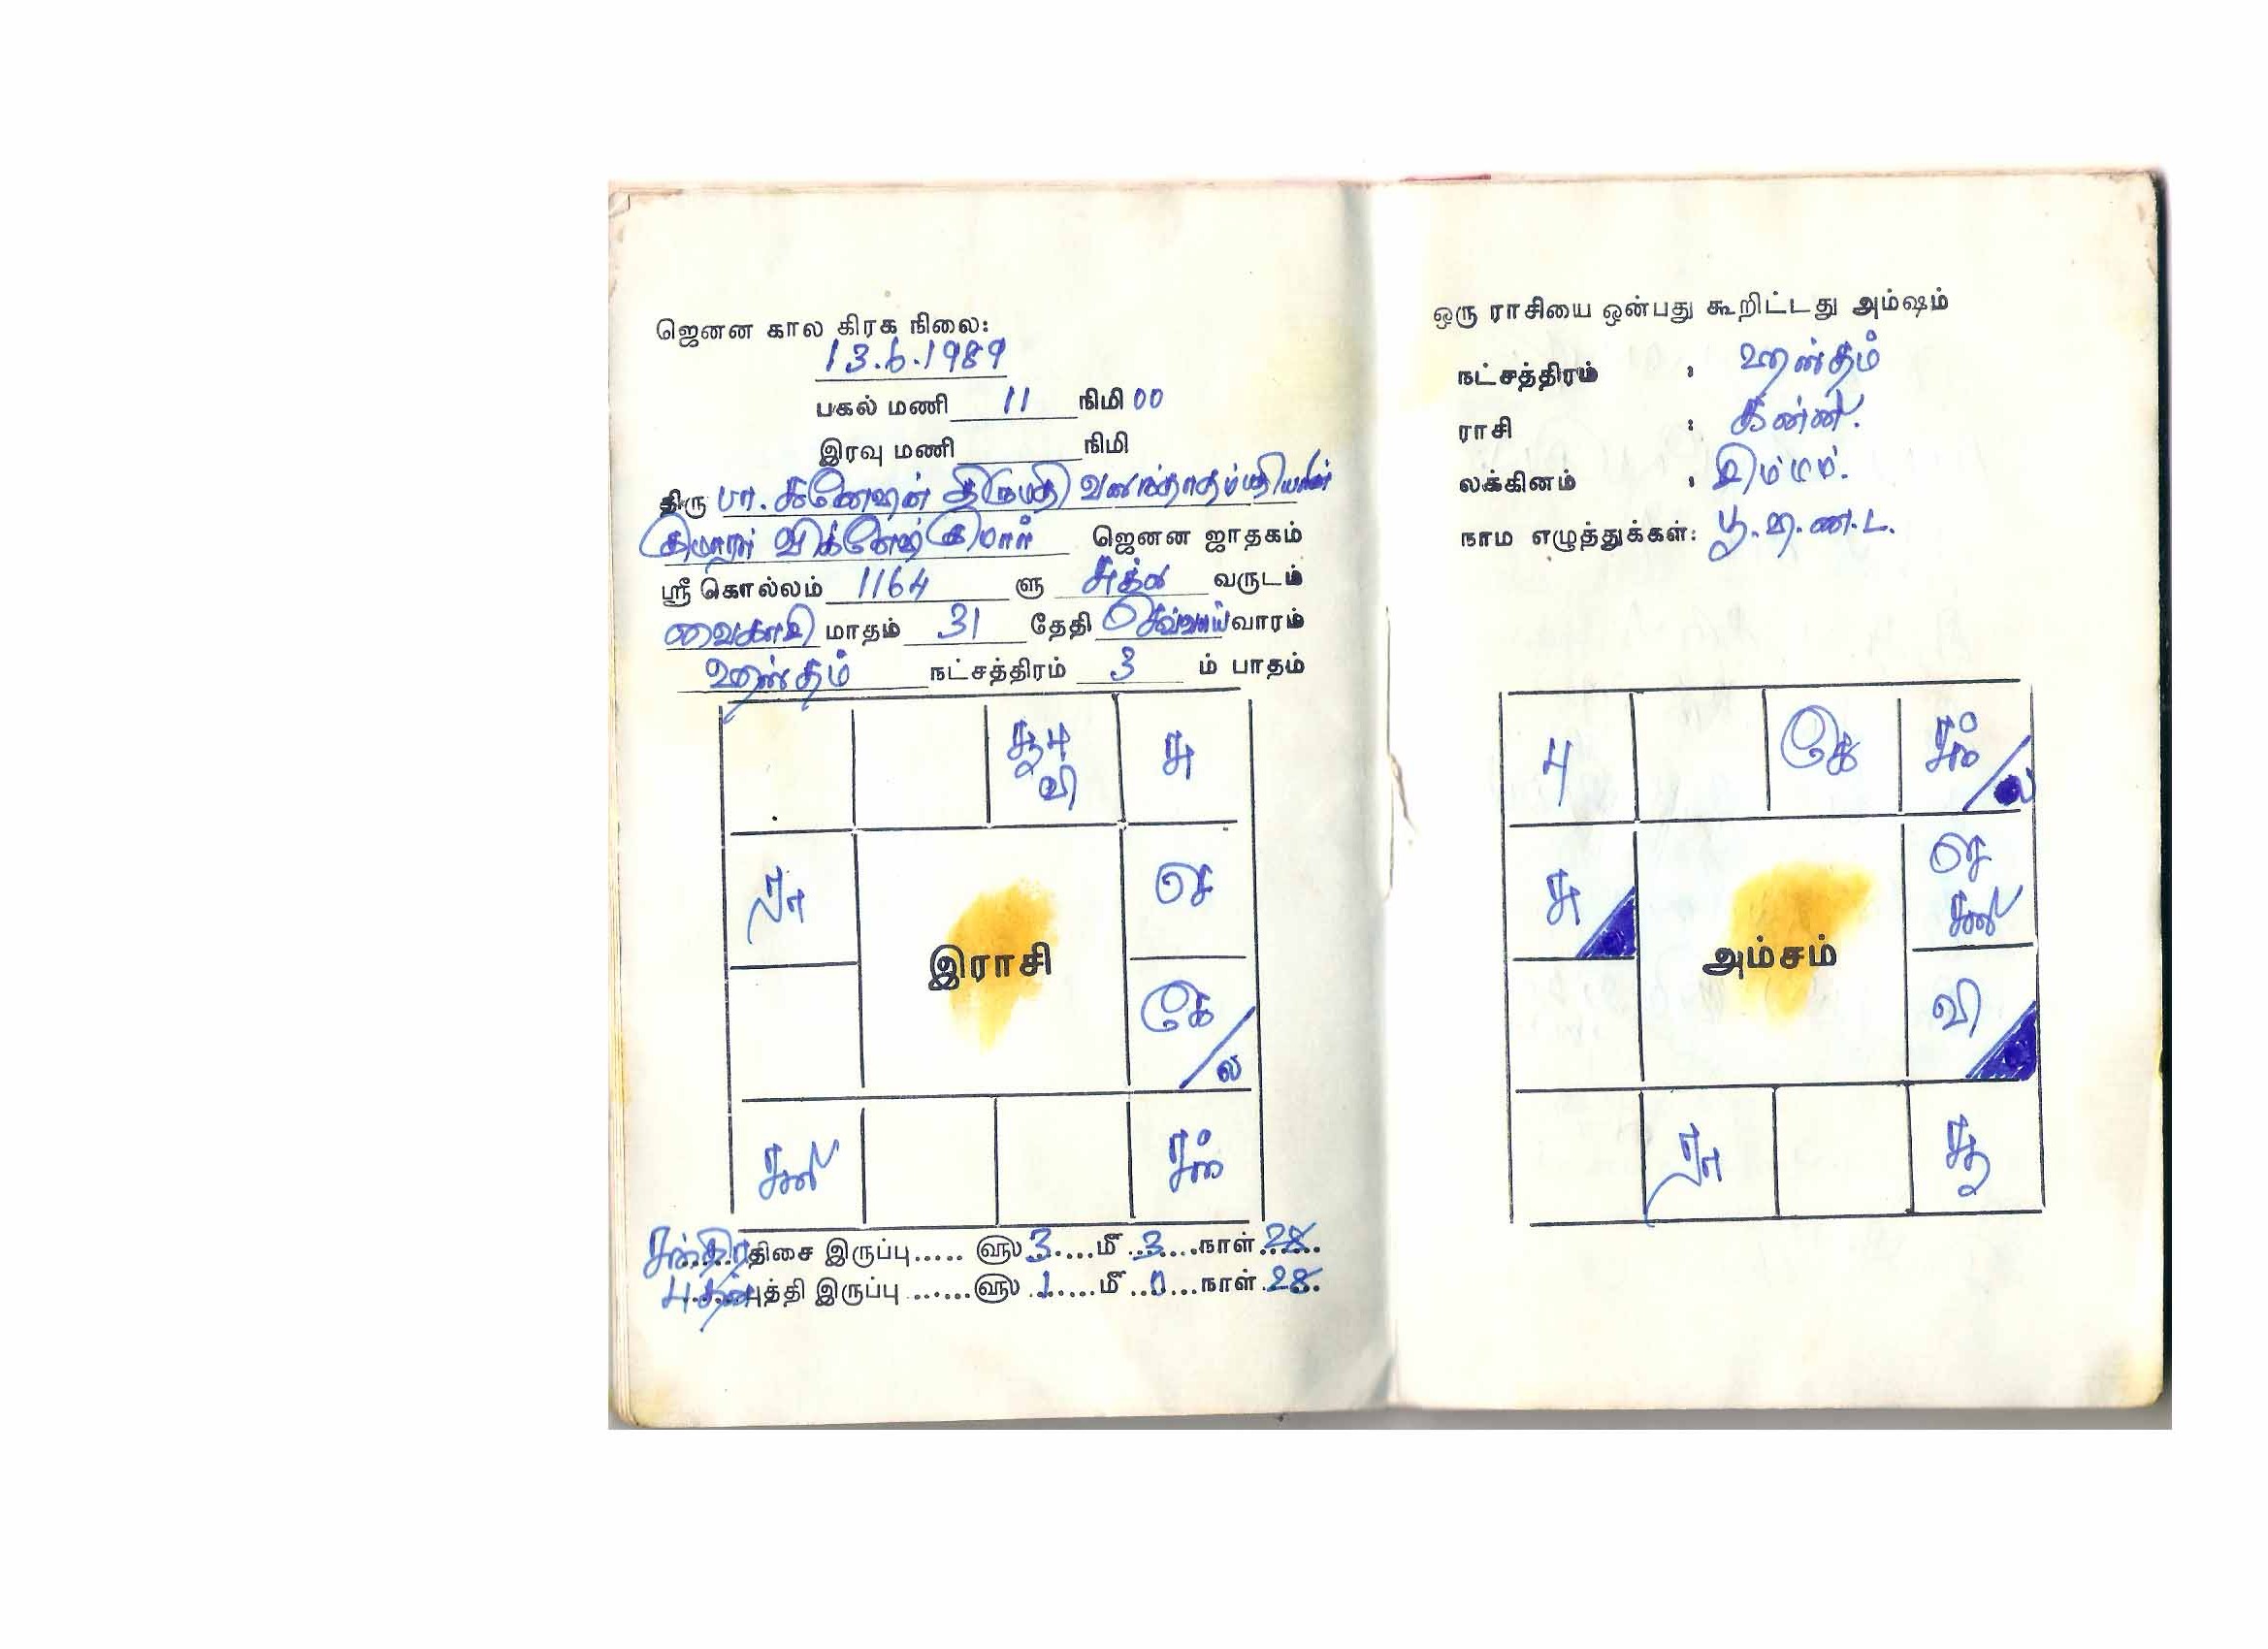 ஜெனன கால கிரக நிலை:
13.6.1989
பகல் மணி 11 நிமி 00
இரவு மணி நிமி
திரு பா. கணேஷன் திருமதி வசந்தாதம்பதியரின்
குமாரர் விக்னேஷ்குமார் ஜெனன ஜாதகம்
ஸ்ரீ கொல்லம் 1164 ளு சுக்ல வருடம்
வைகாசி மாதம் 31 தேதி செவ்வாய் வாரம்
ஹஸ்தம் நட்சத்திரம் 3 ம் பாதம்
சூ பு சு
வி
ரா செ
இராசி
கே
ல
சனி சந்
சந்திர திசை இருப்பு..... ௵ 3 .... மீ 3 .... நாள் 28
புதன் புத்தி இருப்பு ...... ௵ 1 ..... மீ 0 ... நாள் 28
ஒரு ராசியை ஒன்பது கூறிட்டது அம்ஷம்
நட்சத்திரம் : ஹஸ்தம்
ராசி : கன்னி.
லக்கினம் : சிம்மம்.
நாம எழுத்துக்கள்: பூ.ஷ.ண.ட.
பு கே சந்
ல
சு செ
சனி
அம்சம்
வி
ரா சூ